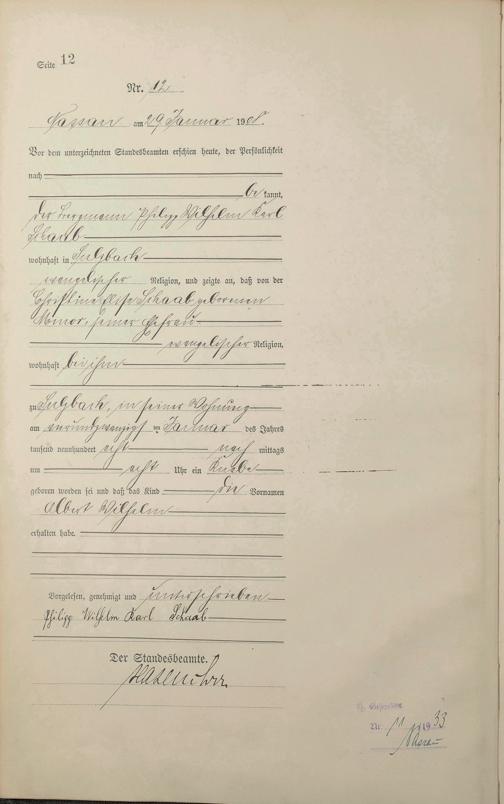 Seite 12
Nr. 12
Nassau am 29 Januar 1908.
Vor dem unterzeichneten Standesbeamten erschien heute, der Persönlichkeit
nach
be kannt,
der Bergmann Philipp Wilhelm Karl
Schaab
wohnhaft in Sulzbach
evangelischer Religion, und zeigte an, daß von der
Christine Schaab geborenen
seiner Ehefrau
evangelischer Religion,
wohnhaft bei ihm
zu Sulzbach, in seiner Wohnung
am vierundzwanzigsten Januar des Jahres
tausend neunhundert acht nach mittags
um acht Uhr ein Knabe
geboren worden sei und daß das Kind die Vornamen
Albert Wilhelm
erhalten habe.
Vorgelesen, genehmigt und unterschrieben
Philipp Wilhelm Karl Schaab
Der Standesbeamte.
Nr. 11 1933